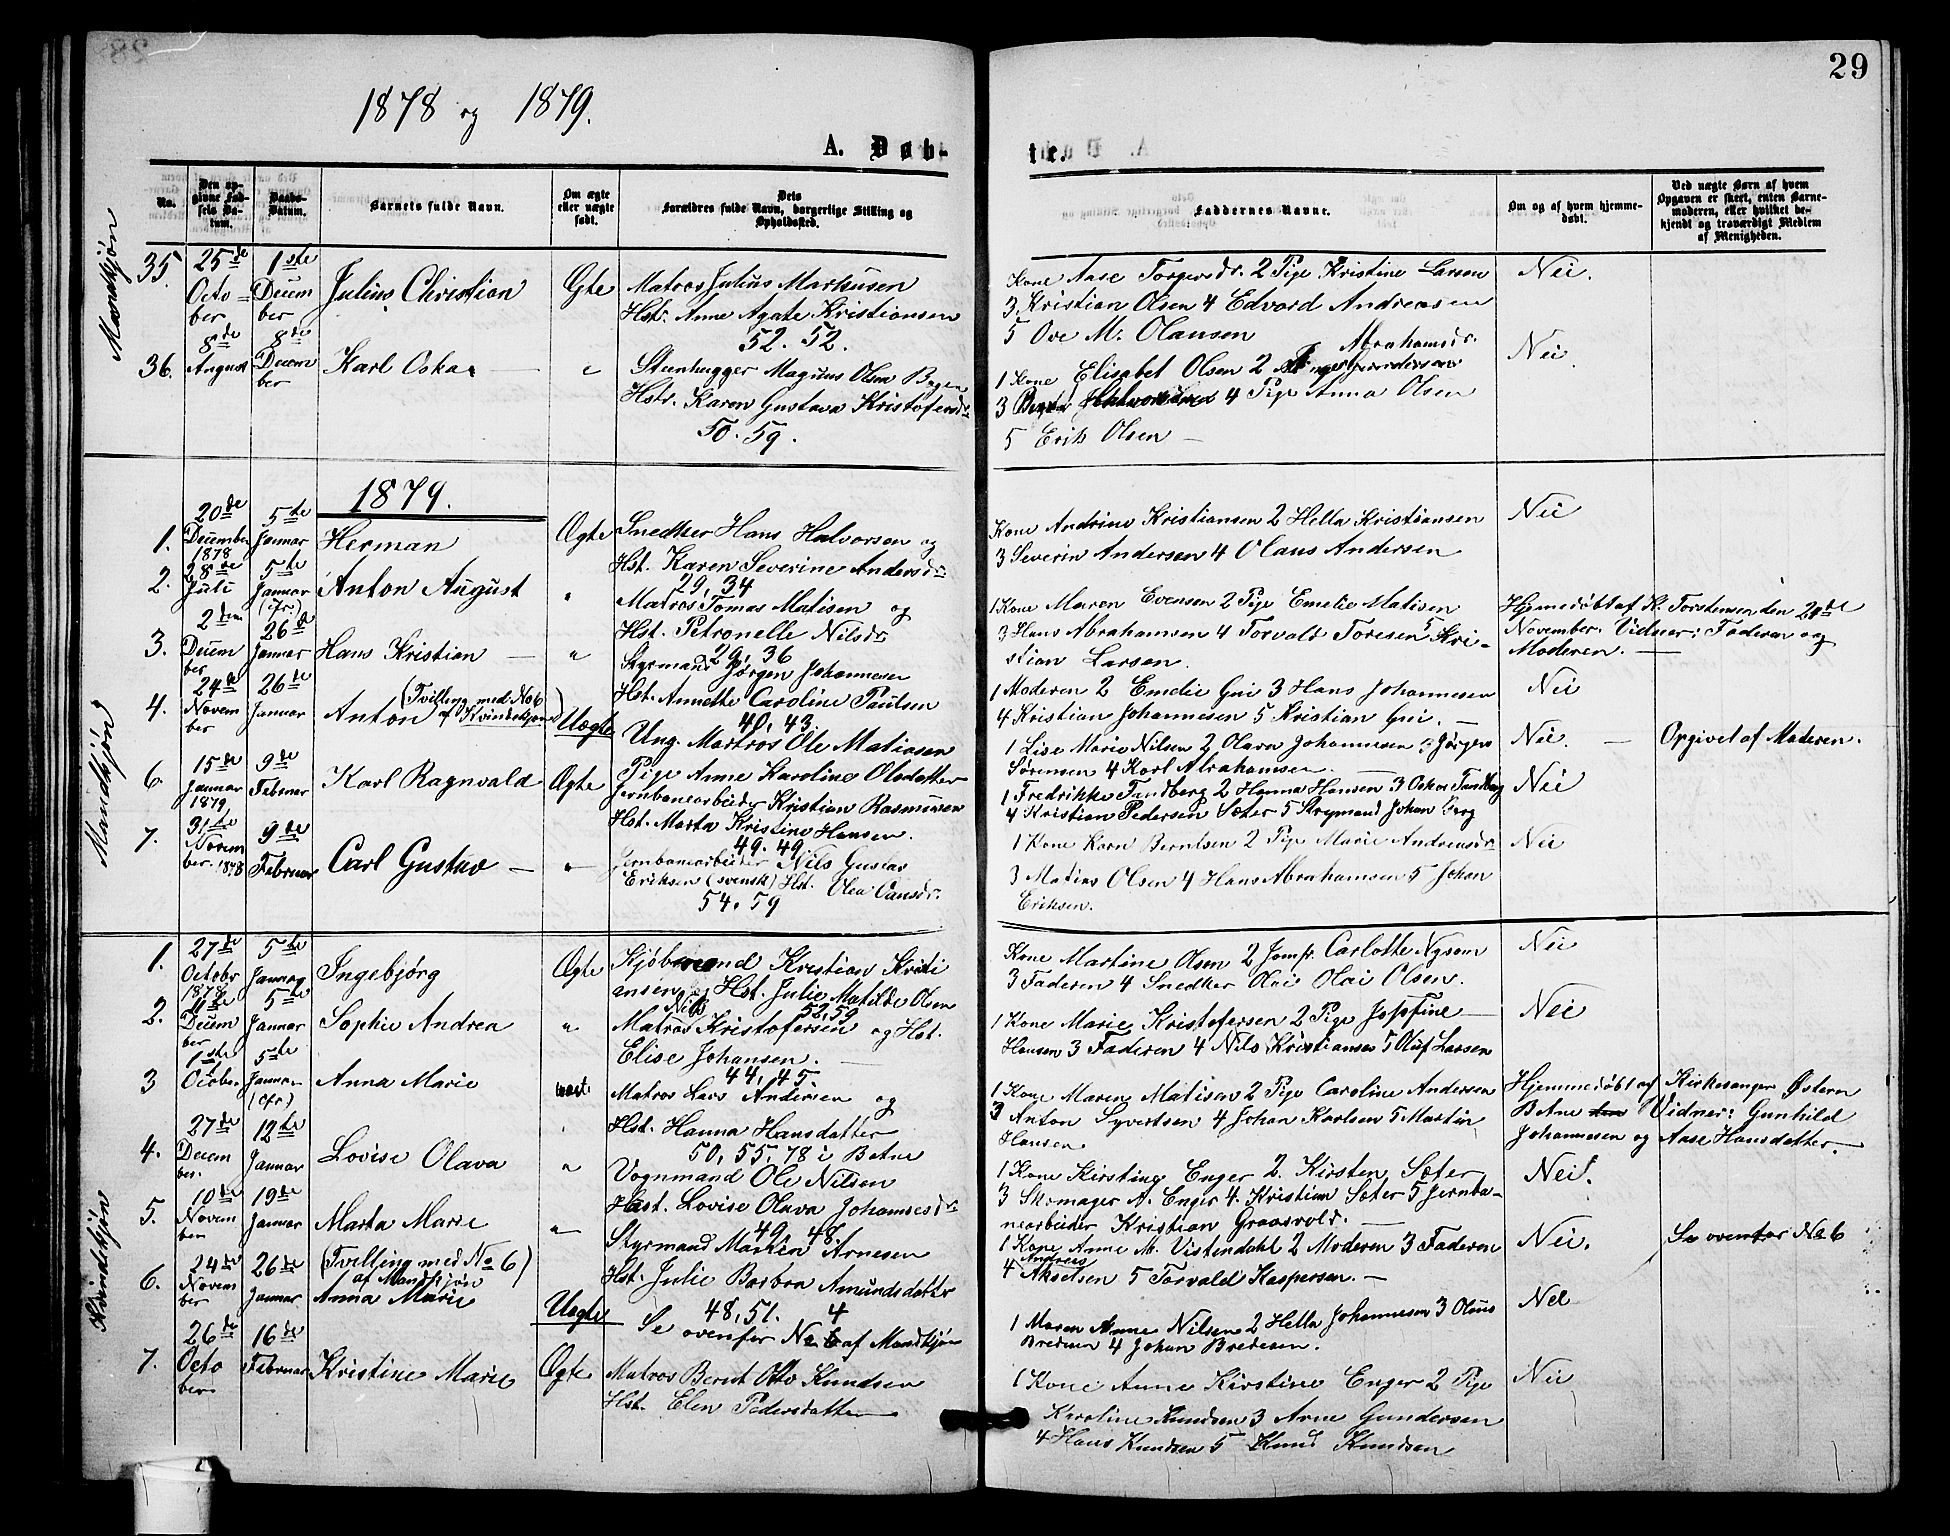 29
1878 og 1879.
A. Døb-
te.
No.
Den op-
givne Fød-
sels Da-
tum.
Daabs-
Datum.
Barnets fulde Navn.
Om ægte
eller uægte
født.
Dets
Forældres fulde Navn, borgerlige Stilling og
Opholdssted.
Faddernes Navne.
Om og af hvem hjemme-
døbt.
Ved uægte Børn af hvem
Opgaven er skeet, enten Barne-
moderen, eller hvilket be-
kjendt og troværdigt Medlem
af Menigheden.
Mandkjøn
35. 25de Octo-ber
1ste Decem ber
Julius Christian
Ægte
Matros Julius Markusen
Hstr. Anne Agate Kristiansen
52. 52.
Kone Aase Torgersdr. 2 Pige Kristine Larsen
3 Kristian Olsen 4 Edvard Andreasen
5 Ove M. Olausen
Nei.
36. 8de August
8de Decem ber
Karl Oskar
"
Steenhugger Magnus Olsen Bagen
Hstr. Karen Gustava Kristofersdr
50. 59.
Abrahamsdr.
1 Kone Elisabet Olsen 2
3 4 Pige Anna Olsen
5 Erik Olsen
Nei.
Mandkjøn
1879.
1. 20de December 1878
5te Januar
Herman
Ægte
Snedker Hans Halvorsen og
Hst. Karen Severine Andersdr
29, 34
Kone Andrine Kristiansen 2 Hella Kristiansen
3 Severin Andersen 4 Olaus Andersen
Nei
2. 28de Juli
5te Januar (cfr.)
Anton August
"
Matros Tomas Matisen og
Hst. Petronelle Nilsdr
29, 36
1 Kone Maren Evensen 2 Pige Emelie Matisen
3 Hans Abrahamsen 4 Torvald Toresen 5 Kri-
stian Larsen.
Hjemedøbt af K. Torstensen den 20de
November. Vidner: Faderen og
Moderen.
3. 2den Decem ber
26de Januar
Hans Kristian
"
Styrmand Jørgen Johannesen
Hst. Annette Caroline Paulsen
40, 43
1 Moderen 2 Emelie Gui 3 Hans Johannesen
4 Kristian Johannesen 5 Kristian Gui.
Nei
4. 24de Novem ber
26de Januar
Anton (Tvilling med No 6
af Kvindekjøn)
Uægte
Ung. Martros Ole Matiasen
Pige Anne Karoline Olsdatter
1 Lise Marie Nilsen 2 Olava Johannesen 3 Jørgen
Sørensen 4 Karl Abrahamsen
Nei.
Opgivet af Moderen.
6 15de Januar 1879,
9de Februar
Karl Ragnvald
Ægte
Jernbanearbeider Kristian Rasmusen
Hst. Marta Kristine Hansen.
49. 49.
1 Fredrikke Tandberg 2 Hanna Hansen 3 Oskar Tandberg
4 Kristian Pedersen Sæter 5 Styrmand Johan Berg
Nei
7. 31te Novem ber. 1878
9de Februar
Carl Gustav
"
Jernbanearbeider Nils Gustav
Eriksen (svensk) Hst. Olea Oansdr.
54. 59
1 Kone Karn Berntsen 2 Pige Marie Andreasdr
3 Matias Olsen 4 Hans Abrahamsen 5 Johan
Eriksen.
Nei
Kvindkjøn
1. 27de Octobr 1878
5te Januar
Ingebjørg
Ægte
Kjøbmand Kristian Kristi
ansen og Hst. Julie Matilde Olsen
52,59
Kone Martine Olsen 2 Jomfr. Carlotte Nysom
3 Faderen 4 Snedker Olai Olai Olsen.
Nei
2. Decem ber
5te Januar
Sophie Andrea
"
Nils
Matros Kristofersen og Hst.
Elise Johansen.
44, 45.
1 Kone Marie Kristofersen 2 Pige Josefine
Hansen 3 Faderen 4 Nils Kristiansen 5 Oluf Larsen
Nei
3 1ste October
5te Januar (cfr)
Anna Marie
Matros Lars Andersen og
Hst. Hanna Hansdatter
50, 55, 78 i Botne
1 Kone Maren Matisen 2 Pige Caroline Andersen
3 Anton Syvertsen 4 Johan Karlsen 5 Martin
Hansen
Hjemmedøbt af Kirkesanger Østern
Botne Vidner: Gunhild
Johannesen og Aase Hansdatter.
4. 27de Decem ber.
12te Januar
Lovise Olava
"
Vognmand Ole Nilsen
Hst. Lovise Olava Johansesdr
49. 48.
1 Kone Kirstine Enger 2. Kirsten Sæter
3 Skomager A. Enger 4. Kristian Sæter 5 Jernba-
nearbeider Kristian Graasvold.
Nei.
5. 10de Novem ber
19de Januar
Marta Marie
"
Styrmand Martin Arnesen
Hst. Julie Barbra Amundsdatter
48, 51.
1 Kone Anne M. Vistendahl 2 Moderen 3 Faderen
Andreas
4 Akselsen 5 Torvald Kaspersen.
Nei.
Se ovenfor No 6
6. 24de Novem ber
26de Januar
(Tvilling med No 6)
af Mandkjøn
Anna Marie
Uægte
4
Se ovenfor No 6 af Mandkjøn
1 Maren Anne Nilsen 2 Hella Johannesen 3 Olaus
Bredesen 4 Johan Bredesen.
Nei
7. 26de Octo ber
16de Februar
Kristine Marie
Ægte
Matros Bernt Otto Knudsen
Hst. Elen Pedersdatter
1 Kone Anne Kirstine Enger 2 Pige
Karoline Knudsen 3 Arne Gundersen
4 Hans Knudsen 5 Knud Knudsen
Nei